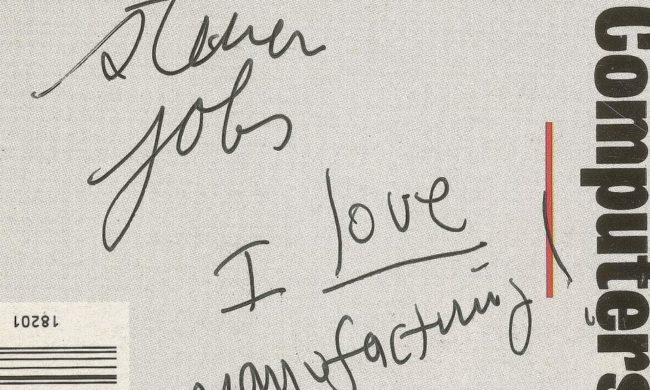 steven
jobs
I love
manufacturing!
Computers
18201